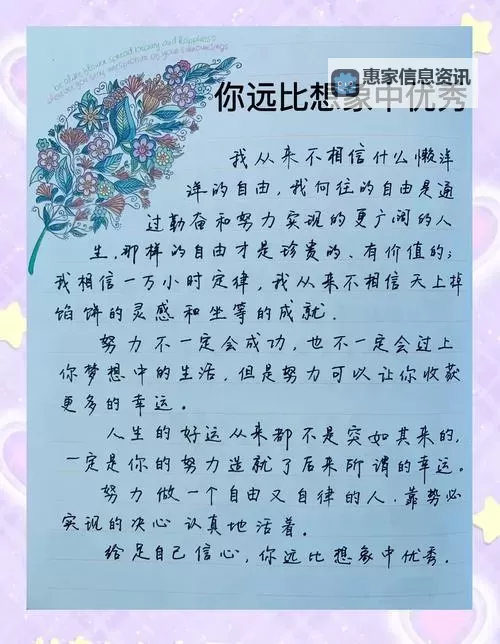 be like a flower, spread beauty and happiness
wherever you stay irrespective of your surroundings
惠家信息资讯
你远比想象中优秀
我从来不相信什么懒洋
洋的自由，我向往的自由是通
过勤奋和努力实现的更广阔的人
生，那样的自由才是珍贵的、有价值的；
我相信一万小时定律，我从来不相信天上掉
馅饼的灵感和坐等的成就．
努力不一定会成功，也不一定会过上
你梦想中的生活，但是努力可以让你收获
更多的幸运。
人生的好运从来都不是突如其来的，
一定是你的努力造就了后来所谓的幸运。
努力做一个自由又自律的人，靠势必
实现的决心认真地活着。
给足自己信心，你远比想象中优秀．